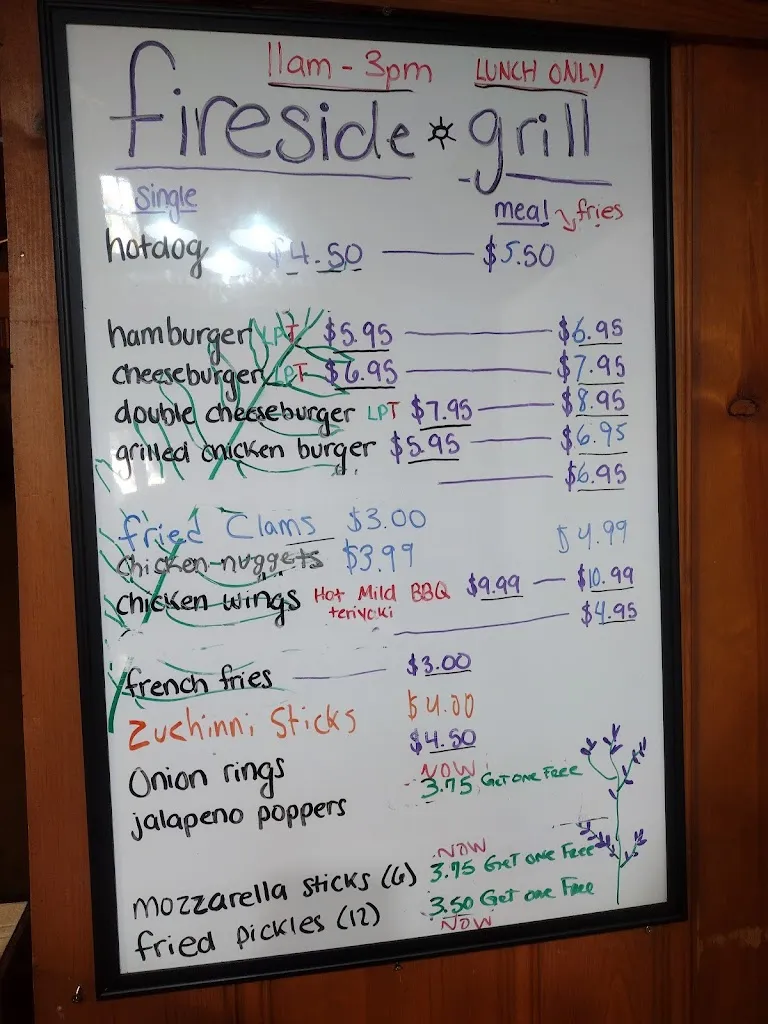 11am - 3pm LUNCH ONLY
fireside grill
single meal fries
hotdog $4.50 $5.50
hamburger LPT $5.95 $6.95
cheeseburger LPT $6.95 $7.95
double cheeseburger LPT $7.95 $8.95
grilled chicken burger $5.95 $6.95
$6.95
fried Clams $3.00
chicken nuggets $3.99 $4.99
chicken wings Hot Mild BBQ $9.99 $10.99
teriyaki $4.95
french fries $3.00
Zuchinni Sticks $4.00
Onion rings $4.50
NOW
jalapeno poppers 3.75 Get one Free
NOW
mozzarella sticks (6) 3.75 Get one Free
fried pickles (12) 3.50 Get one Free
NOW